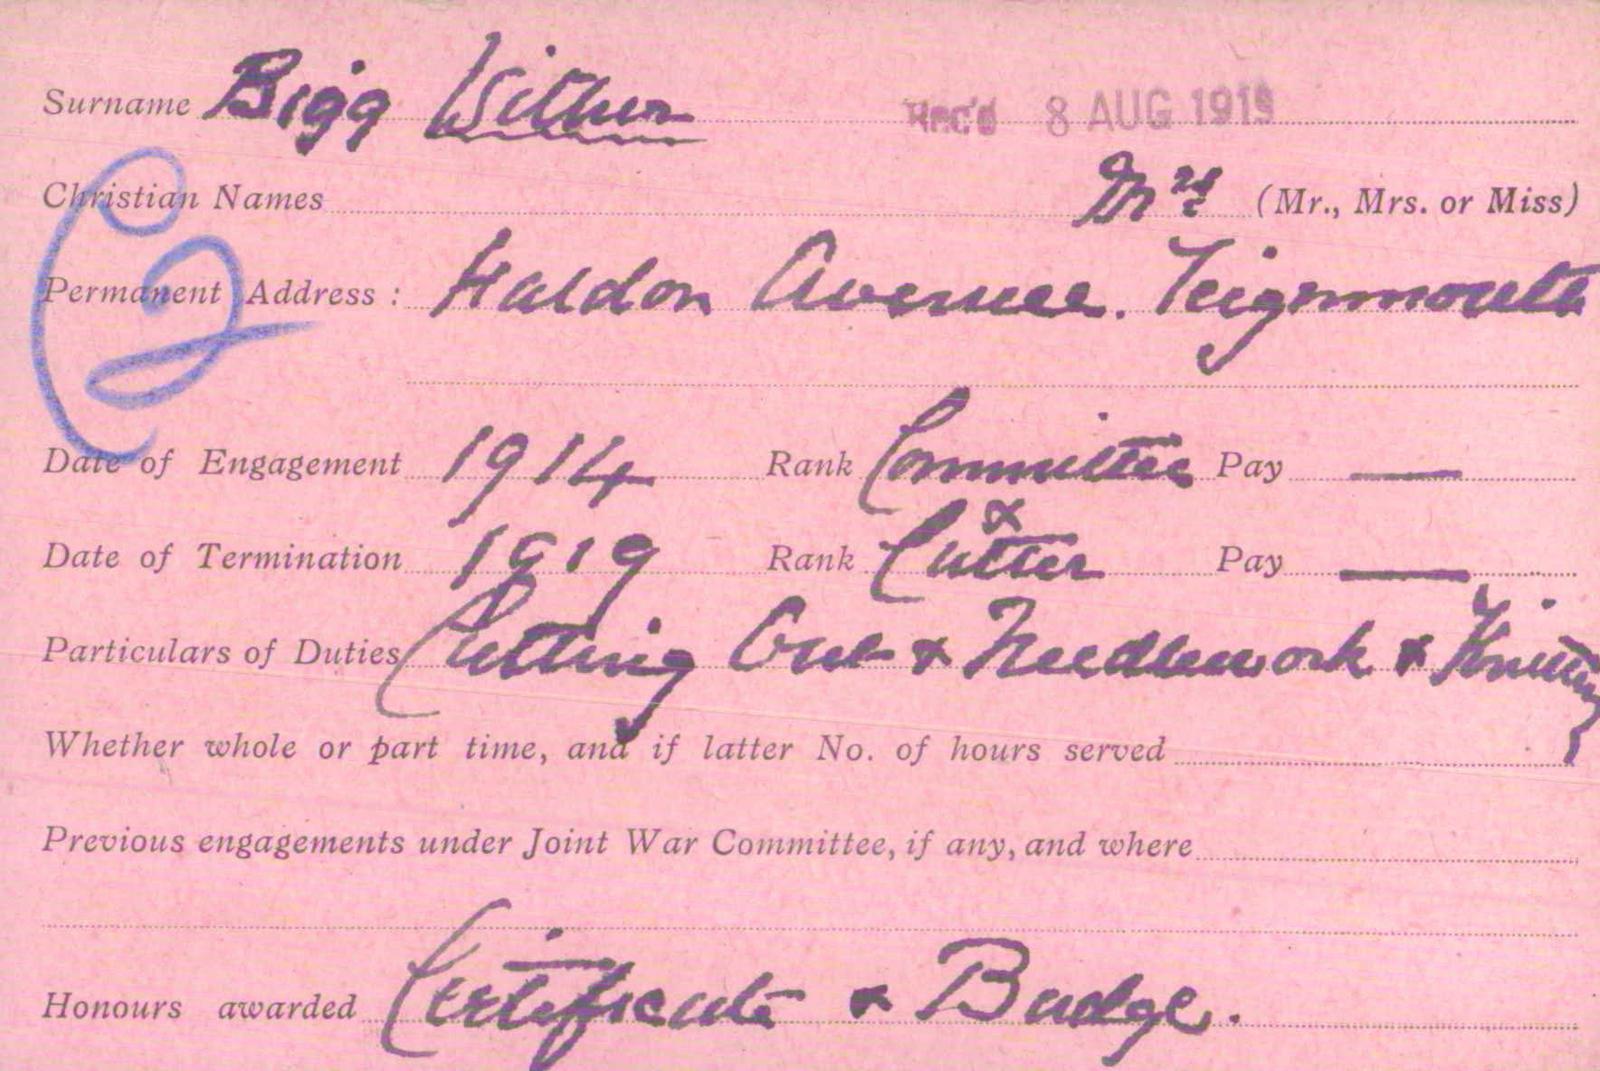 Surname Bigg Wither Rec'd 8 AUG 1919
Christian Names Mrs (Mr., Mrs. or Miss)
Permanent Address : Haldon Avenue. Teignmouth
Date of Engagement 1914 Rank Committee Pay —
&
Date of Termination 1919 Rank Cutter Pay —
Particulars of Duties Cutting Out & Needlework & Knitting
Whether whole or part time, and if latter No. of hours served
Previous engagements under Joint War Committee, if any, and where
Honours awarded Certificate & Badge.